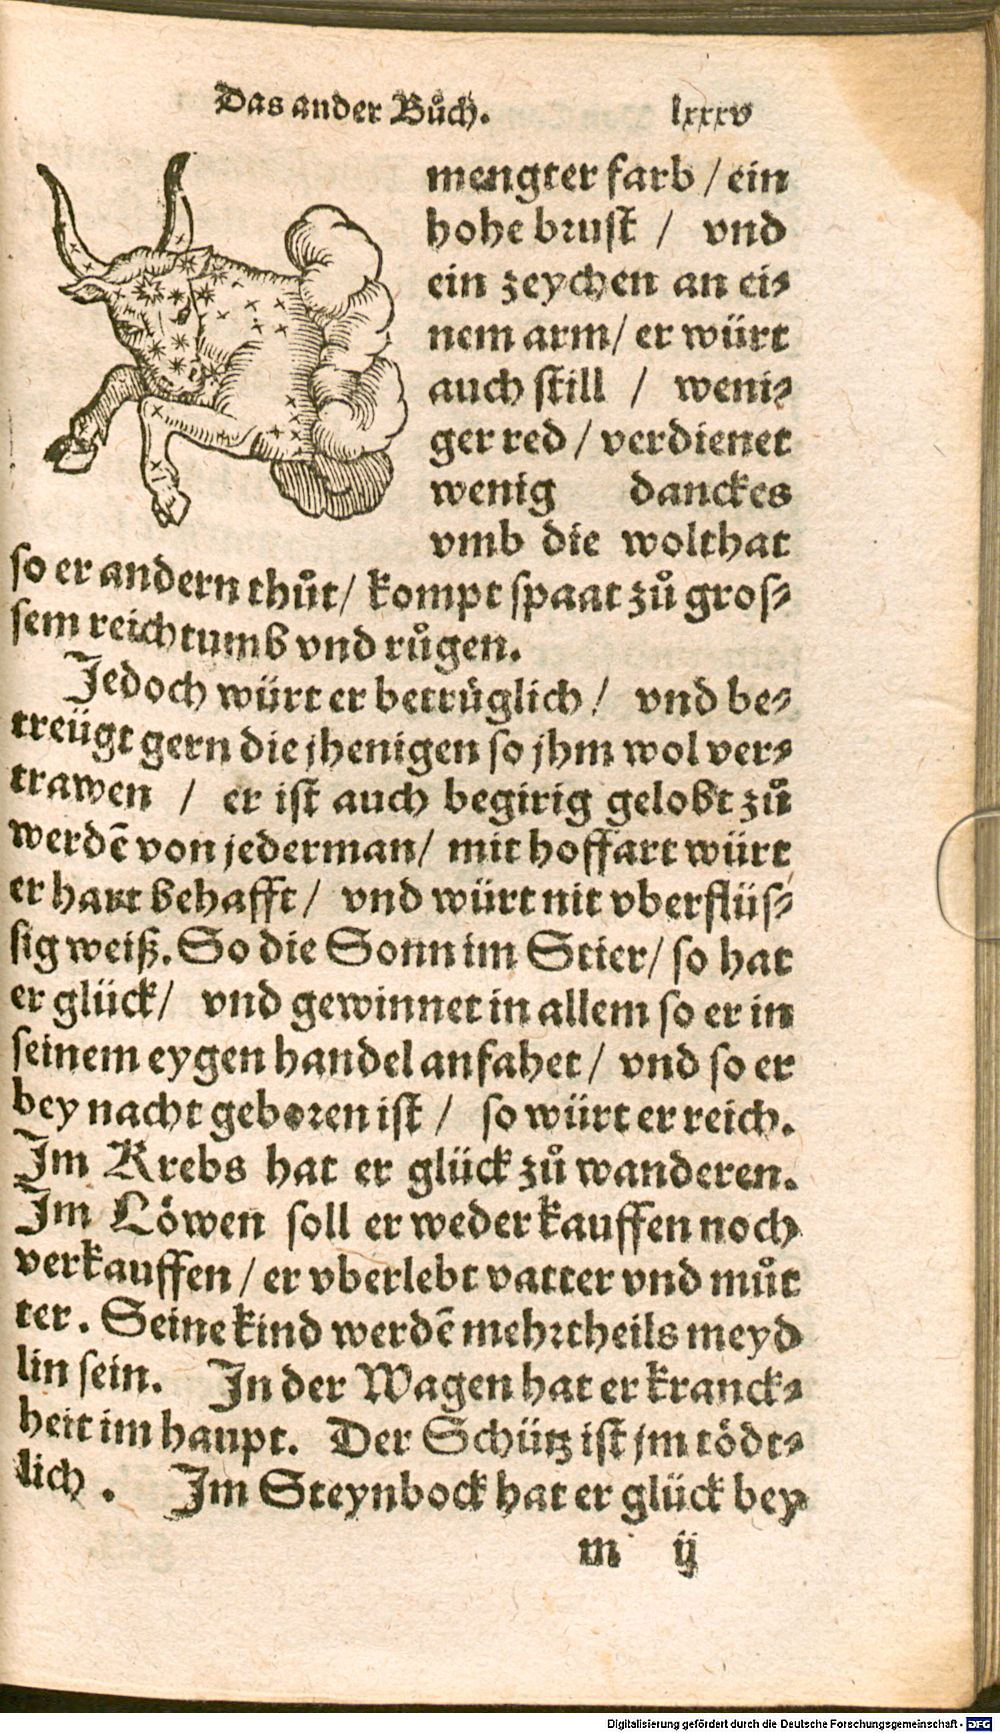 Das ander Bůch. lxxxv
mengter farb / ein
hohe brust / vnd
ein zeychen an ei⸗
nem arm / er würt
auch still / weni⸗
ger red / verdienet
wenig danckes
vmb die wolthat
so er andern thůt / kompt spaat zů gros⸗
sem reichtumb vnd růgen.
Jedoch würt er betrüglich / vnd be⸗
treügt gern die jhenigen so jhm wol ver⸗
trawen / er ist auch begirig gelobt zů
werdẽ von jederman / mit hoffart würt
er hart behafft / vnd würt nit vberflüs⸗
sig weiß. So die Sonn im Stier / so hat
er glück / vnd gewinnet in allem so er in
seinem eygen handel anfahet / vnd so er
bey nacht geboren ist / so würt er reich.
Jm Krebs hat er glück zů wanderen.
Jm Löwen soll er weder kauffen noch
verkauffen / er vberlebt vatter vnd můt
ter. Seine kind werdẽ mehrtheils meyd
lin sein. Jn der Wagen hat er kranck⸗
heit im haupt. Der Schütz ist jm tödt⸗
lich. Jm Steynbock hat er glück bey
m ij
Digitalisierung gefördert durch die Deutsche Forschungsgemeinschaft - DFG